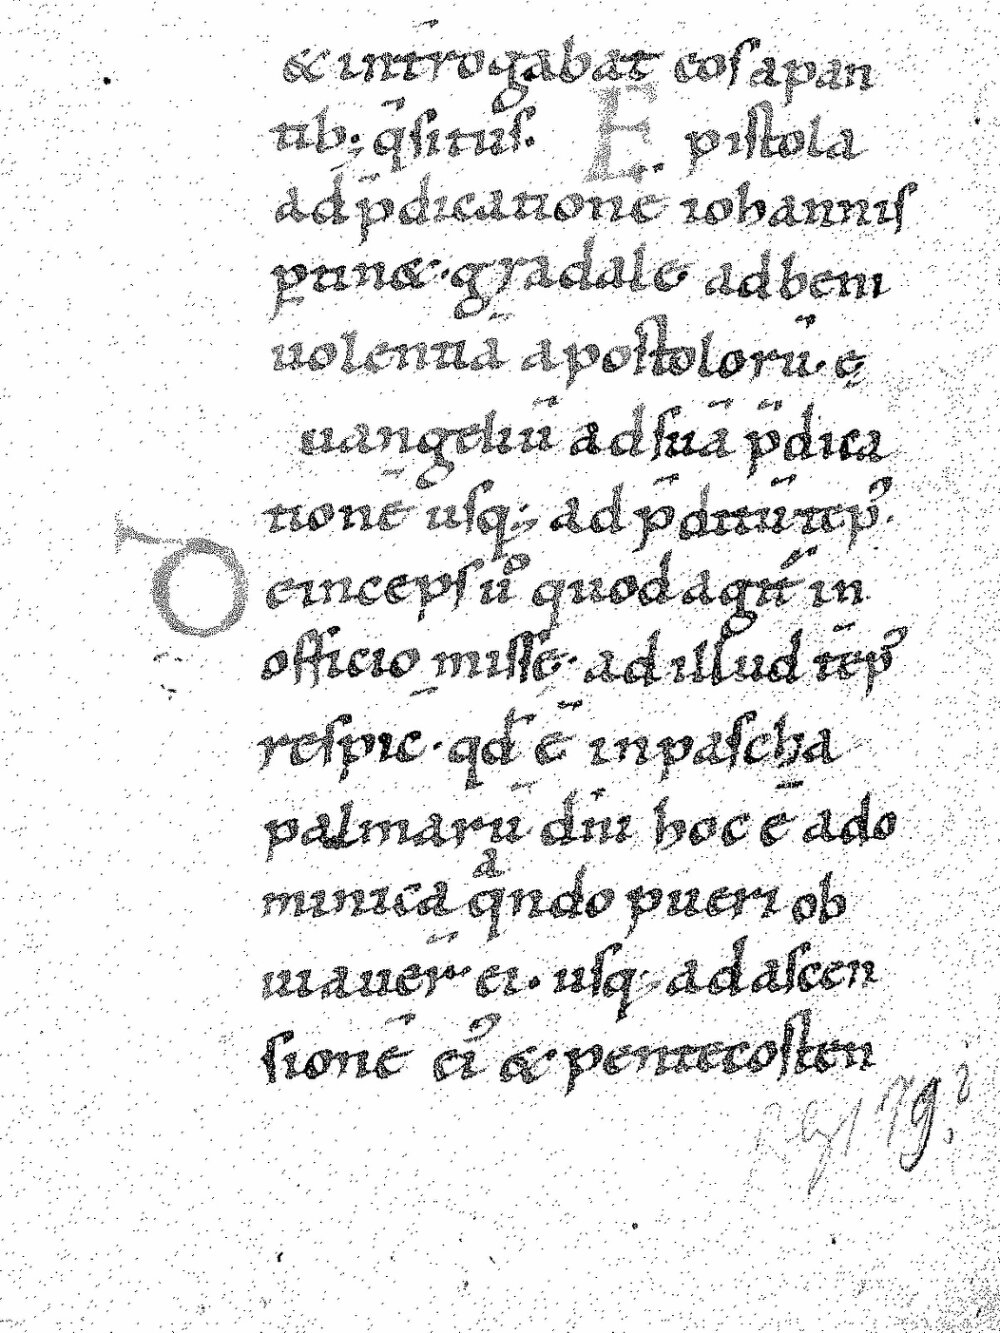 & int̄rogabat eos a paren
tib: q̄situs. Epistola
ad p̄dicationē iohannis
ꝑtin&. gradale ad beni
uolentiā apostolorū. e
uangeliū ad suā p̄dica
tionē usq; ad p̄dictū tēp᾿.
Deinceps uº quod agit̄ in
officio missę. ad illud tēp᾿
respic. qđ ē in pascha
palmarū dn̄i hoc ē a do
minicā qᵃndo pueri ob
uiauer̄ ei. usq; ad ascen
sionē ei᾿ & pentecosten